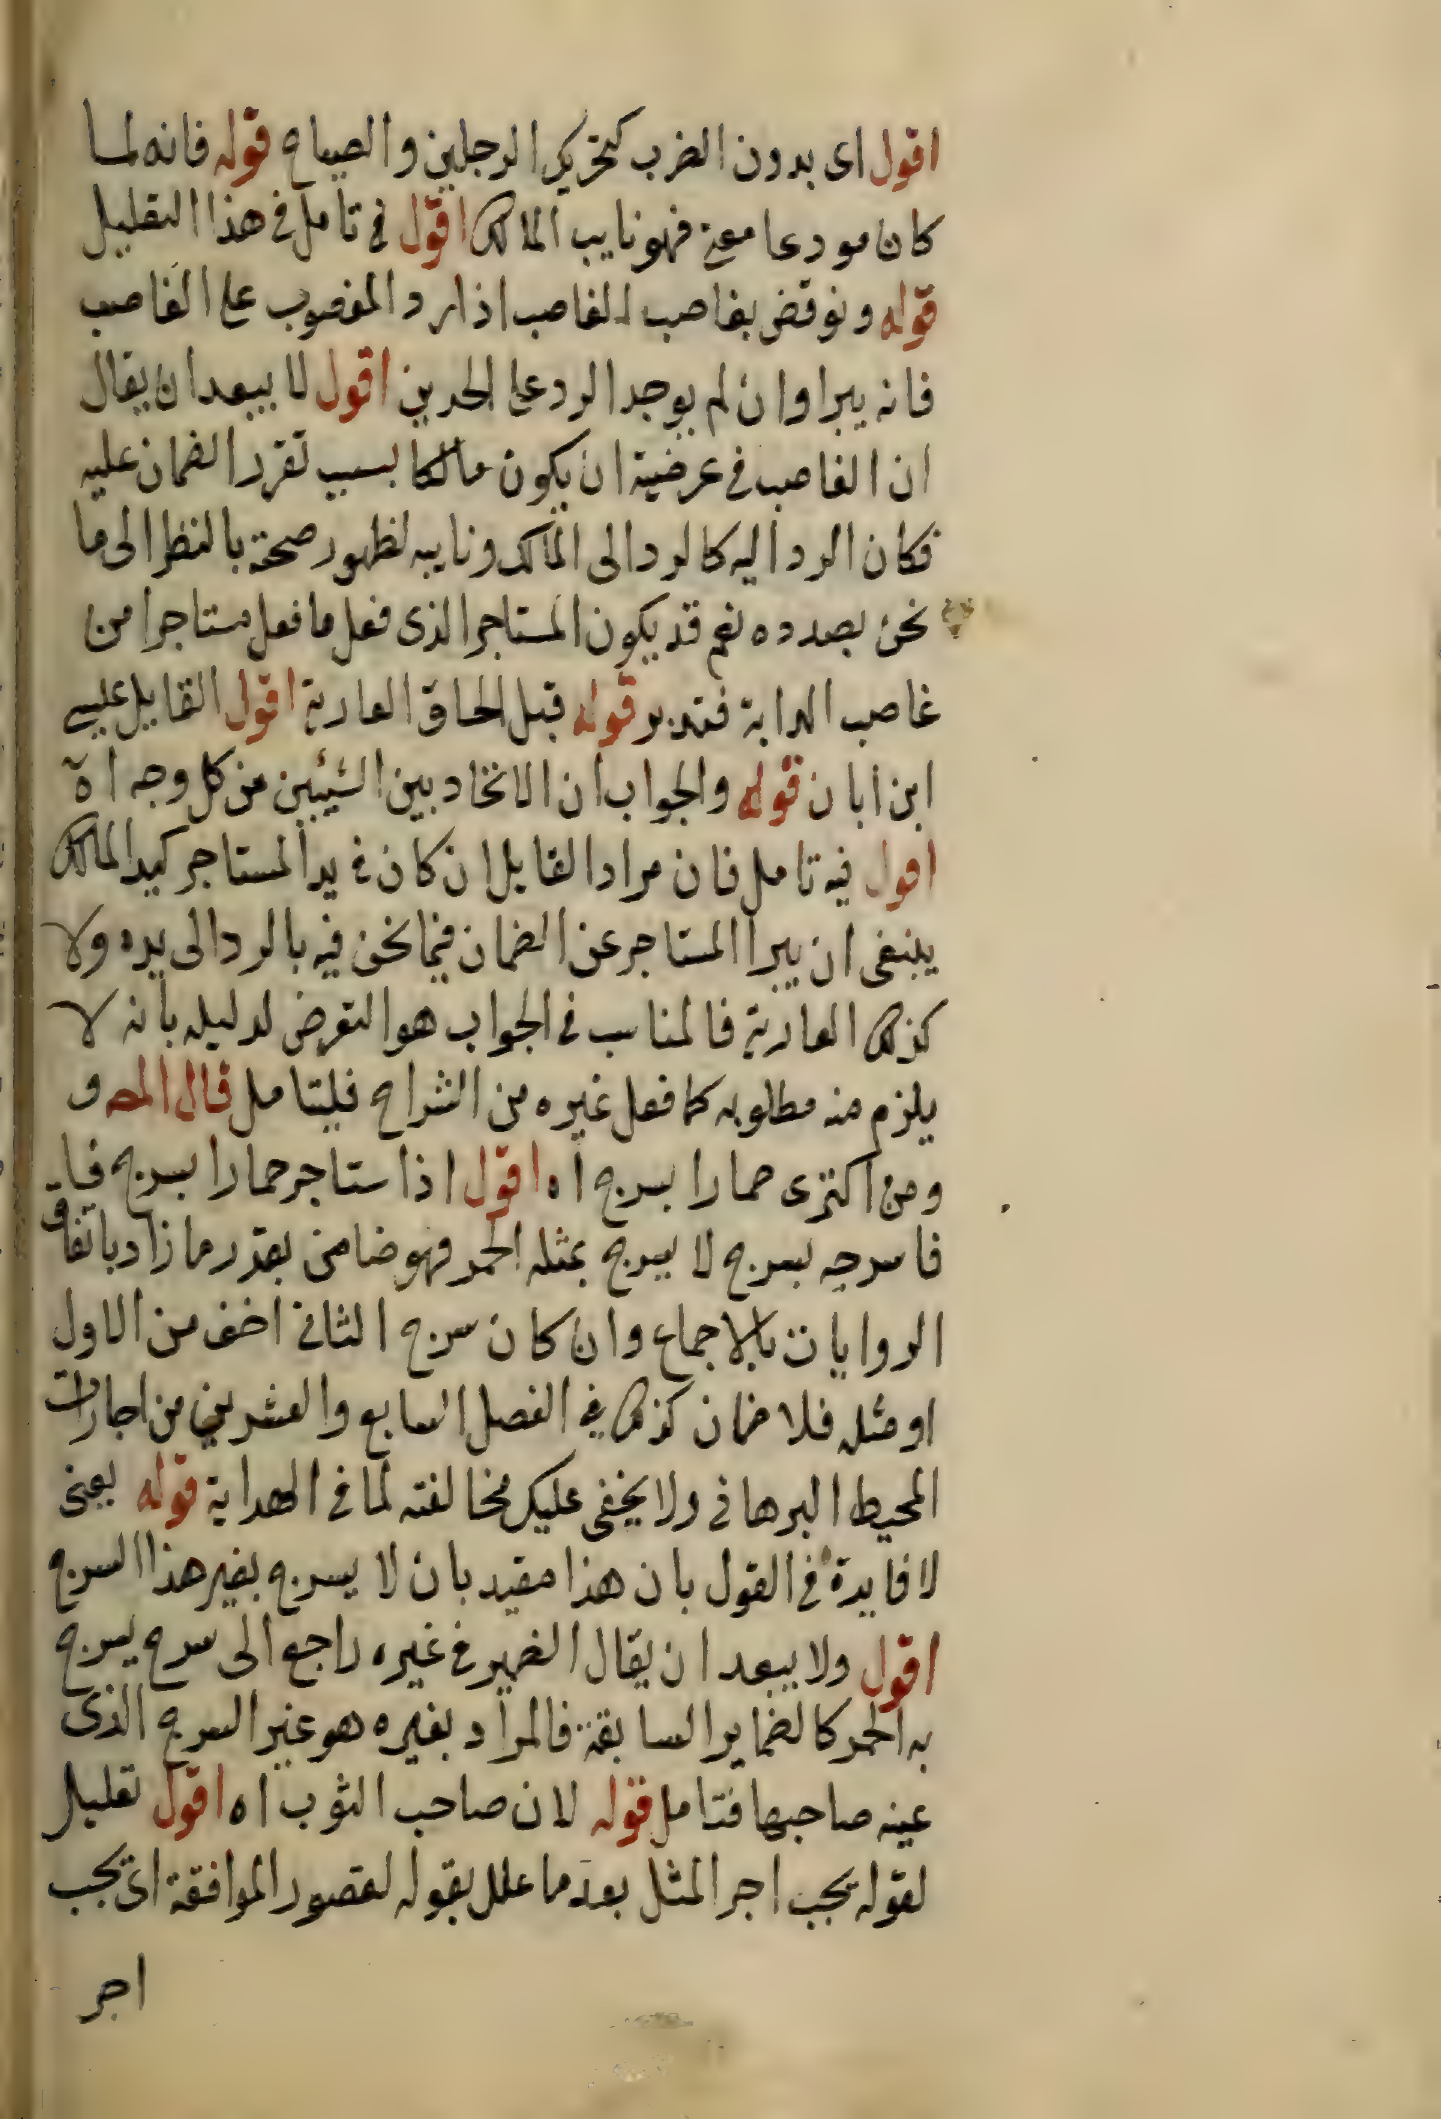 اقول اى بدون الضرب كتحريك الرجلين والصياح قوله فانه لما
كان مودعا معنى فهو نايب المالك اقول فى تامل فى هذا التعليل
قوله ونوقض بغاصب الغاصب اذا رد المغصوب على الغاصب
فانه يبرا وان لم يوجد الرد على الحدين اقول لا يبعد ان يقال
ان الغاصب فى عرضية ان يكون مالكا بسبب تقرر الضمان عليه
فكان الرد اليه كالرد الى المالك ونايبه لظهور صحته بالنظر الى ما
نحن بصدده نعم قد يكون المستاجر الذى فعل ما فعل مستاجرا من
غاصب الدابة فتدبر قوله قبل الحاق العارية اقول القايل عليسى
ابن ابان قوله والجواب ان الاتحاد بين الشيئين من كل وجه اه
اقول فيه تامل فان مراد القايل ان كان فى يد المستاجر كيد المالك
ينبغى ان يبرا المستاجر عن الضمان فيما نحن فيه بالرد الى يده ولا
كذلك العارية فالمناسب فى الجواب هو التعرض لدليله بانه لا
يلزم منه مطلوبه كما فعل غيره من الشراح فليتامل قال المص و
ومن اكترى حمارا بسرج اه اقول اذا ستاجر حمارا بسرج
فاسرجه بسرج لا يسرج بمثله الحمر فهو ضامن بقدر ما زاد باتفاق
الروايات بالاجماع وان كان سرج الثانى اخف من الاول
او مثله فلا ضمان كذلك فى الفصل السابع والعشرين من اجارات
المحيط البرهانى ولا يخفى عليك مخالفته لما فى الهداية قوله يعنى
لا فايدة فى القول بان هذا مقيد بان لا يسرج بغير هذا السرج
اقول ولا يبعد ان يقال الضمير فى غيره راجع الى سرج يسرج
به الحمر كالضماير السابقة فالمراد بغيره هو غير السرج الذى
عينه صاحبها فتامل قوله لان صاحب الثوب اه اقول تعليل
لقوله يجب اجر المثل بعد ما علل بقوله لقصور الموافقة اى يجب
اجر